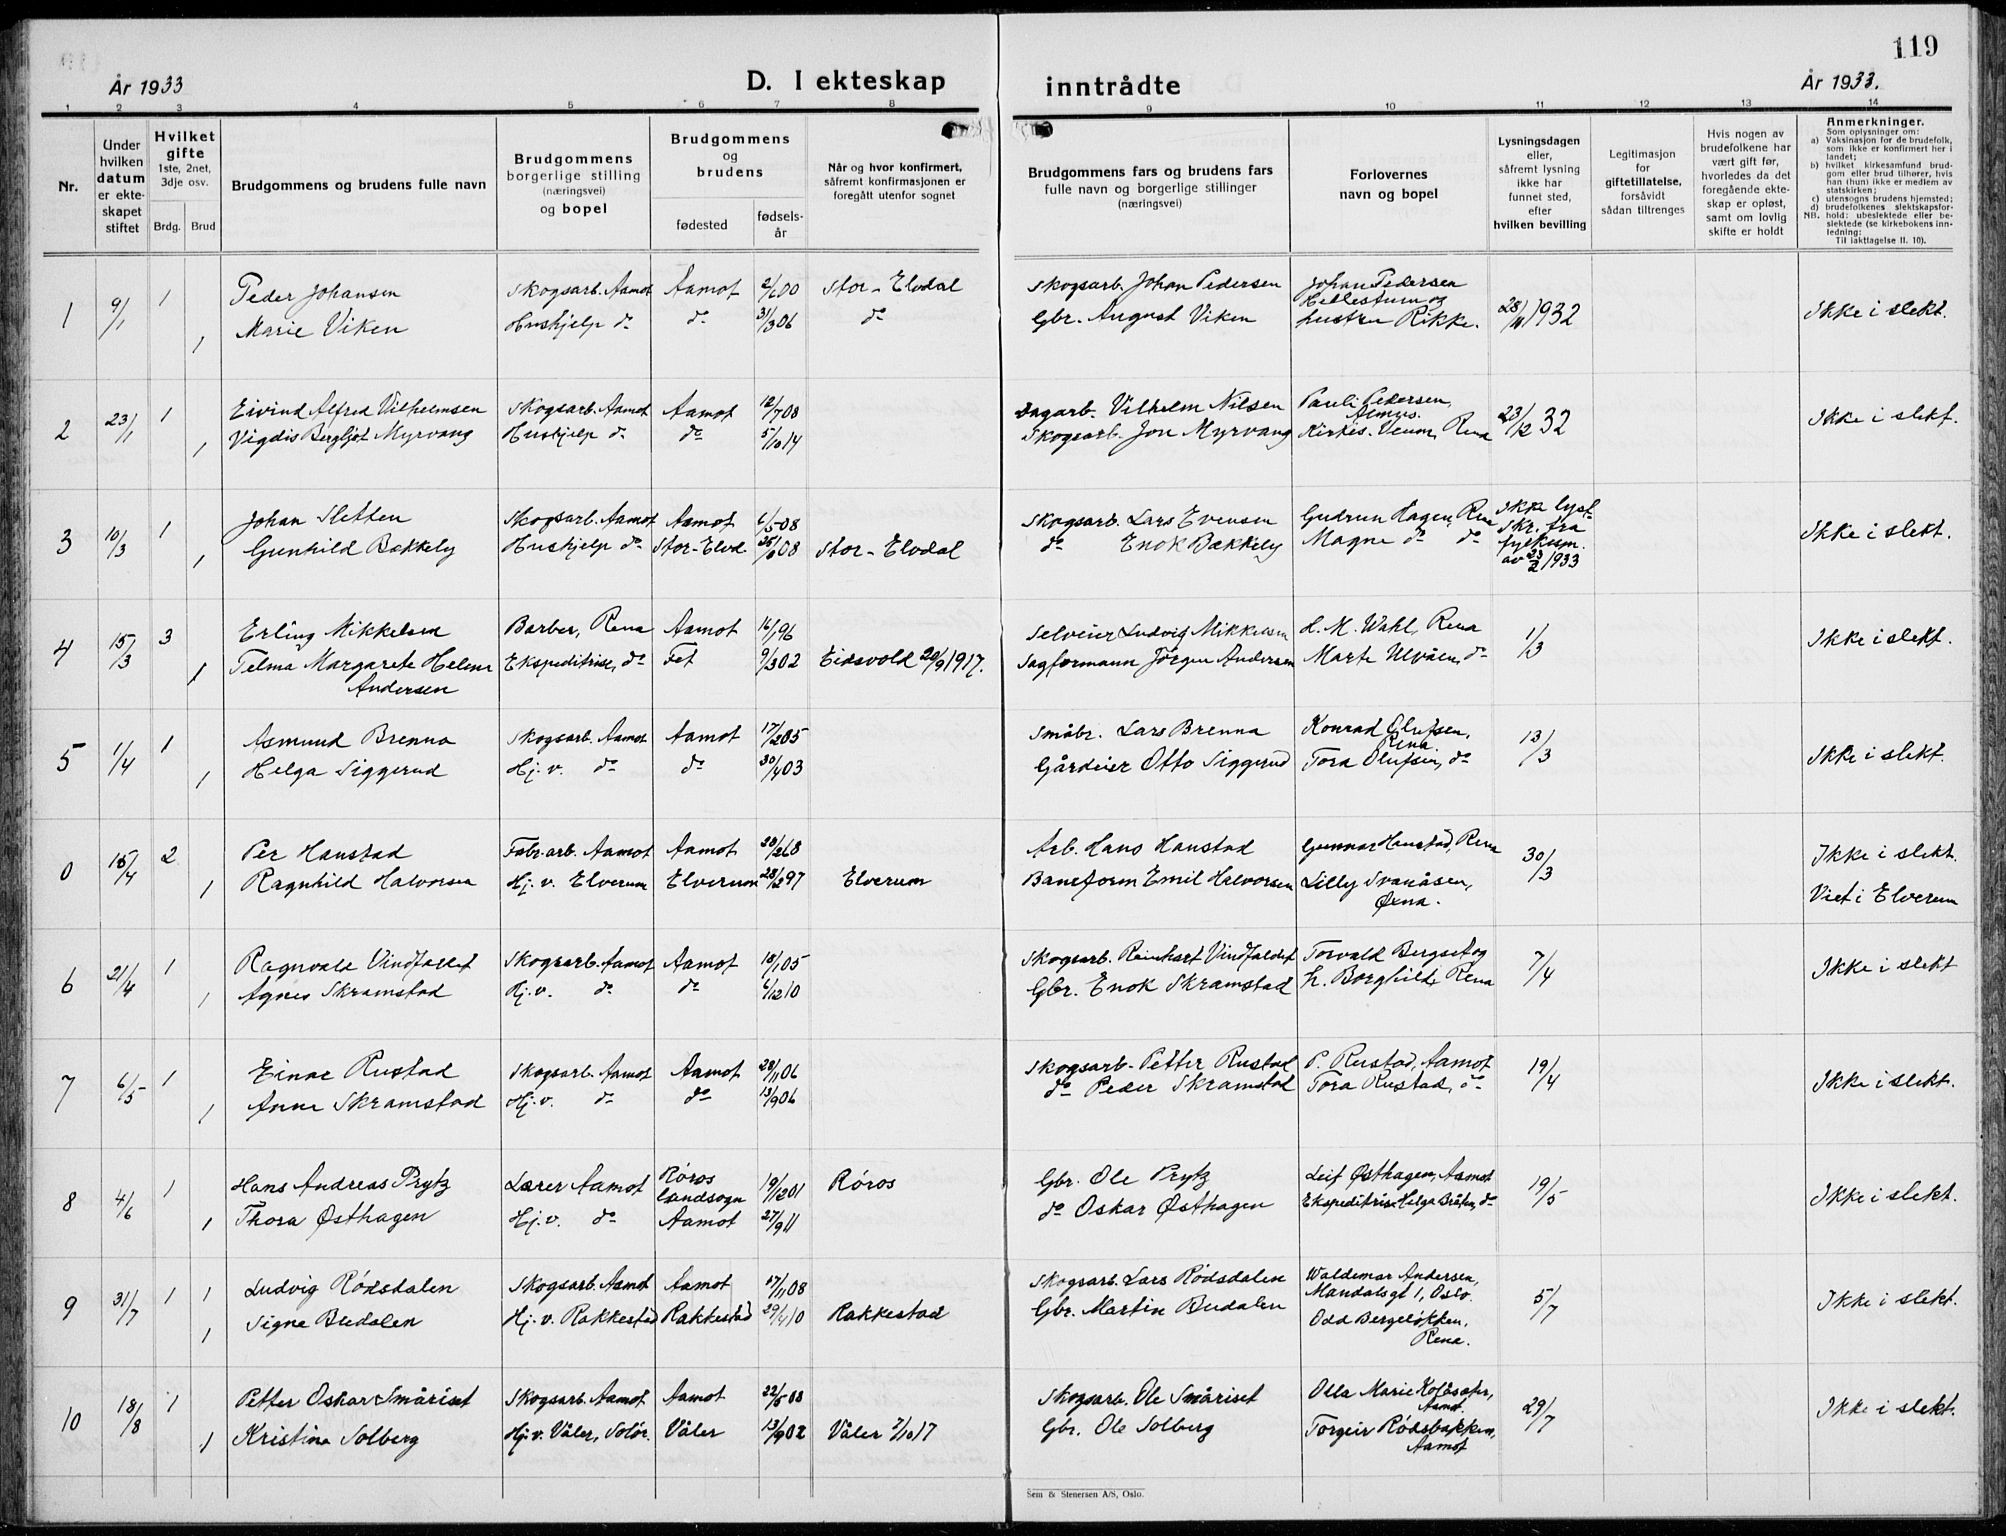 119
År 1933
D. I ekteskap
inntrådte
År 1933.
1 2 3 4 5 6 7 8 9 10 11 12 13 14
Nr.
Under hvilken datum er ekteskapet stiftet
Hvilket gifte 1ste, 2net, 3dje osv.
Brdg. Brud
Brudgommens og brudens fulle navn
Brudgommens borgerlige stilling (næringsvei) og bopel
Brudgommens og brudens
fødested
fødselsår
Når og hvor konfirmert, såfremt konfirmasjonen er foregått utenfor sognet
Brudgommens fars og brudens fars fulle navn og borgerlige stillinger (næringsvei)
Forlovernes navn og bopel
Lysningsdagen eller, såfremt lysning ikke har funnet sted, efter hvilken bevilling
Legitimasjon for giftetillatelse, forsåvidt sådan tiltrenges
Hvis nogen av brudefolkene har vært gift før, hvorledes da det foregående ekteskap er opløst, samt om lovlig skifte er holdt
Anmerkninger.
Som oplysninger om:
a) Vaksinasjon for de brudefolk, som ikke er konfirmert her i landet;
b) hvilket kirkesamfund brudgom eller brud tilhører, hvis han (hun) ikke er medlem av statskirken;
c) utensogns brudens hjemsted;
d) brudefolkenes slektskapsforhold: ubeslektede eller beslektede (se kirkebokens innledning:
NB. Til iakttagelse II. 10).
1 9/1 1 Peder Johansen Skogsarb. Aamot Aamot 2/6 00 Stor-Elvdal Skogsarb. Johan Pedersen Johan Pedersen
Hellestum og
1 Marie Viken Hushjelp do do 31/3 06 do Gbr. August Viken hustru Rikke. 28/11 1932 Ikke i slekt.
2 23/1 1 Eivind Alfred Vilhelmsen Skogsarb. Aamot Aamot 12/7 08 Dagarb. Vilhelm Nilsen Pauli Pedersen,
1 Vigdis Bergljot Myrvang Hushjelp do do 5/10 14 Skogsarb. Jon Myrvang Kirkes. Rena 23/12 32 Ikke i slekt.
3 10/3 1 Johan Sletten Skogsarb. Aamot Aamot 6/5 08 Skogsarb. Lars Evensen Gudrun Hagen, Rena Ikke lyst
1 Gunhild Bækkely Hushjelp do Stor-Elvd. 08 Stor-Elvdal do Enok Bækkely Magne do do Skr. fra
fylkesm.
av 23/2 1933 Ikke i slekt.
4 15/3 3 Erling Mikkelsen Barber, Rena Aamot 16/1 96 Selveier Ludvig Mikkelsen H. M. Wahl, Rena 1/3 Ikke i slekt.
1 Telma Margarete Helene Ekspeditrise, do Fet 9/3 02 Eidsvold 20/9 1917. Sagformann Jørgen Andersen Marte Ulvåen, do
Andersen
5 1/4 1 Asmund Brenna Skogsarb. Aamot Aamot 17/2 05 Småbr. Lars Brenna Konrad Olufsen,
Rena. 13/3
1 Helga Siggerud Hj. v. do do 30/4 03 Gårdeier Otto Siggerud Tora Olufsen, do Ikke i slekt.
0 15/4 2 Per Hanstad Fabr.arb. Aamot Aamot 20/2 68 Arb. Hans Hanstad Gunnar Hanstad, Rena 30/3 Ikke i slekt.
1 Ragnhild Halvorsen Hj. v. Elverum Elverum 28/12 97 Elverum Baneform Emil Halvorsen Lilly Svanåsen,
Øxna. Viet i Elverum
6 21/4 1 Ragnvald Vindfallet Skogsarb. Aamot Aamot 18/1 05 Skogsarb. Reinhart Vindfaldet Torvald Bergset og 7/4 Ikke i slekt
1 Agnes Skramstad Hj. v. do do 6/12 10 Gbr. Enok Skramstad h. Borghild, Rena
7 6/5 1 Einar Rustad Skogsarb. Aamot Aamot 29/1 06 Skogsarb. Petter Rustad P. Rustad, Aamot 19/4
1 Anne Skramstad Hj. v. do do 13/9 06 do Peder Skramstad Tora Rustad, do Ikke i slekt.
8 4/6 1 Hans Andreas Prytz Lærer Aamot Røros
landsogn 19/12 01 Røros Gbr. Ole Prytz Leif Østhagen, Aamot 19/5 Ikke i slekt.
1 Thora Østhagen Hj. v. do Aamot 27/9 11 do Oskar Østhagen Ekspeditrise Helga Bråten, do
9 31/7 1 1 Ludvig Rødsdalen Skogsarb. Aamot Aamot 17/1 08 Skogsarb. Lars Rødsdalen Waldemar Andersen,
Mandalsgt 1, Oslo. 5/7 Ikke i slekt.
1 Signe Budalen Hj. v. Rakkestad Rakkestad 29/4 10 Rakkestad Gbr. Martin Budalen Odd Bergeløkken,
Rena.
10 18/8 1 Petter Oskar Småriset Skogsarb. Aamot Aamot 22/5 08 Skogsarb. Ole Småriset Olla Marie Kolåsæter,
Aamot. 29/7 Ikke i slekt.
1 Kristine Solberg Hj. v. Våler, Solør. Våler 13/9 02 Våler 7/10 17 Gbr. Ole Solberg Torgeir Rødsbakken,
Aamot
Sem & Stenersen A/S, Oslo.